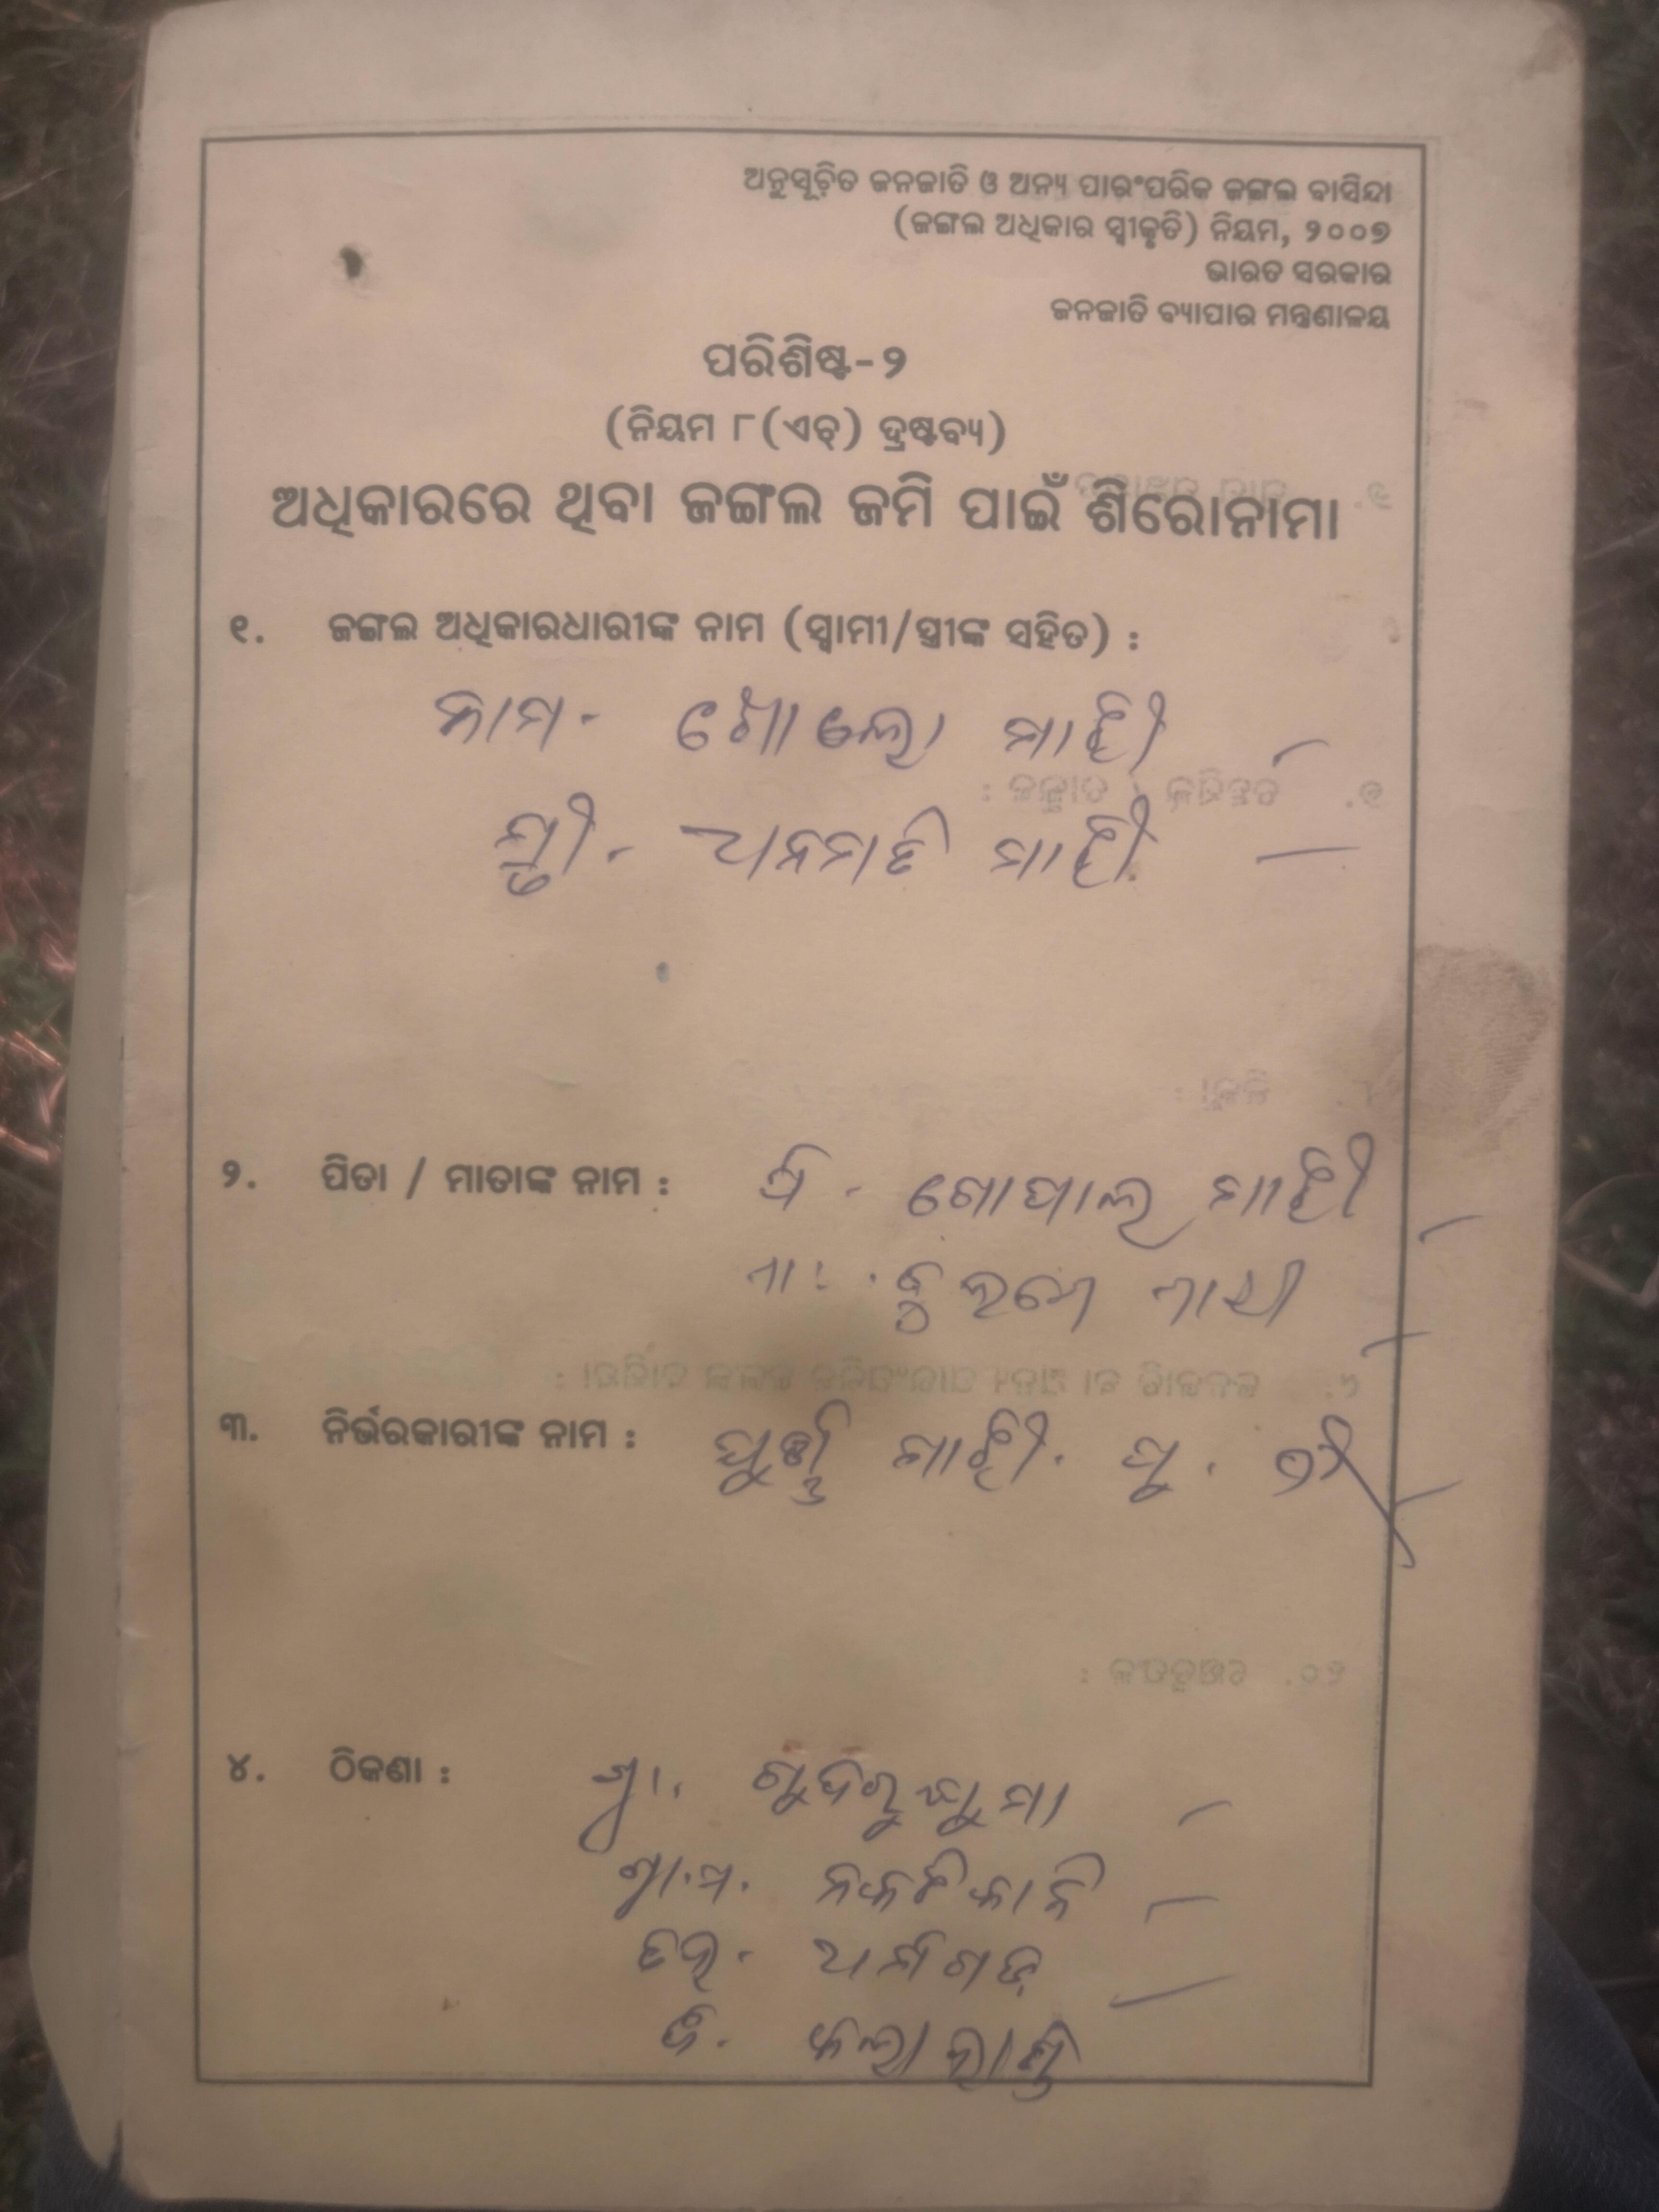 ଅନୁସୂଚିତ ଜନଜାତି ଓ ଅନ୍ୟ ପାରଂପରିକ ଜଙ୍ଗଲ ବାସିନ୍ଦା
(ଜଙ୍ଗଲ ଅଧିକାର ସ୍ୱୀକୃତି) ନିୟମ, ୨୦୦୭
ଭାରତ ସରକାର
ଜନଜାତି ବ୍ୟାପାର ମନ୍ତ୍ରଣାଳୟ
ପରିଶିଷ୍ଟ-୨
(ନିୟମ ୮(ଏଚ୍) ଦ୍ରଷ୍ଟବ୍ୟ)
ଅଧିକାରରେ ଥିବା ଜଙ୍ଗଲ ଜମି ପାଇଁ ଶିରୋନାମା
୧. ଜଙ୍ଗଲ ଅଧିକାରଧାରୀଙ୍କ ନାମ (ସ୍ୱାମୀ/ସ୍ତ୍ରୀଙ୍କ ସହିତ) :
ନାମ- ମାଝୀ
ସ୍ତ୍ରୀ- ମାଝୀ
୨. ପିତା / ମାତାଙ୍କ ନାମ : ପି - ଗୋପାଲ ମାଝୀ
ମା:
୩. ନିର୍ଭରକାରୀଙ୍କ ନାମ : ମାଝୀ. ପୁ.
୪. ଠିକଣା : ଗ୍ରା.
ଗ୍ରା.ପ.
ତହ- ଧର୍ମଗଡ଼
ଜି. କଳାହାଣ୍ଡି